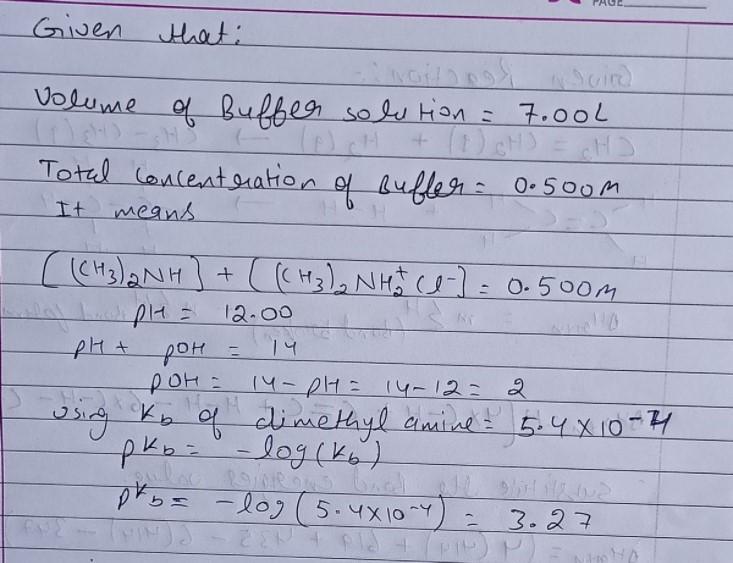 PAGE
Given that:
Volume of Buffer solution = 7.00L
Total concentration of Buffer = 0.500M
It means
[(CH3)2NH] + [(CH3)2NH2+Cl-] = 0.500M
pH = 12.00
pH + pOH = 14
pOH = 14-pH = 14-12 = 2
Using Kb of dimethyl amine = 5.4×10-4
pKb = -log(Kb)
pKb = -log(5.4×10-4) = 3.27